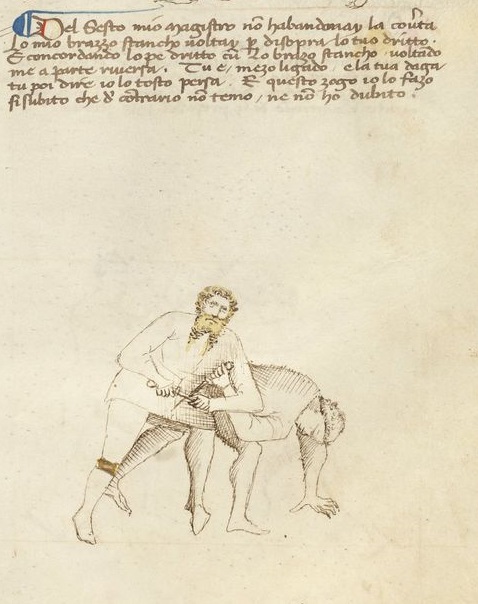 Del Sesto mio magistro nō habandonay la cov̄ta
Lo mio brazzo stancho voltay ꝑ disopra lo tuo dritto.
E concordando lo pe dritto cū lo brazo stancho voltado
me a parte riversa. Tu e / mezo ligado / e la tua daga
tu poi dire io lo tosto persa. E questo zogo io lo fazo
si subito che d̄ contrario nō temo / ne nō ho dubito.